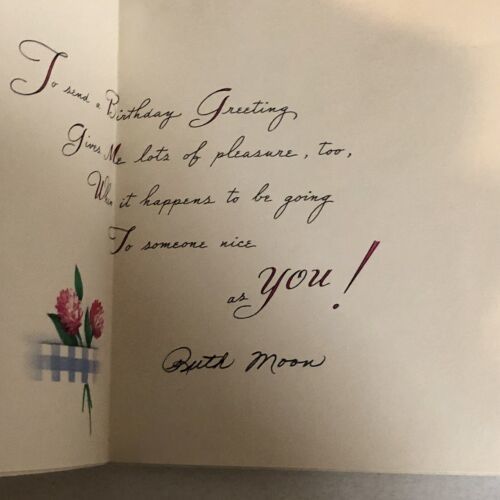 To send a Birthday Greeting
Gives Me lots of pleasure, too,
When it happens to be going
To someone nice
as you!
Ruth Moon